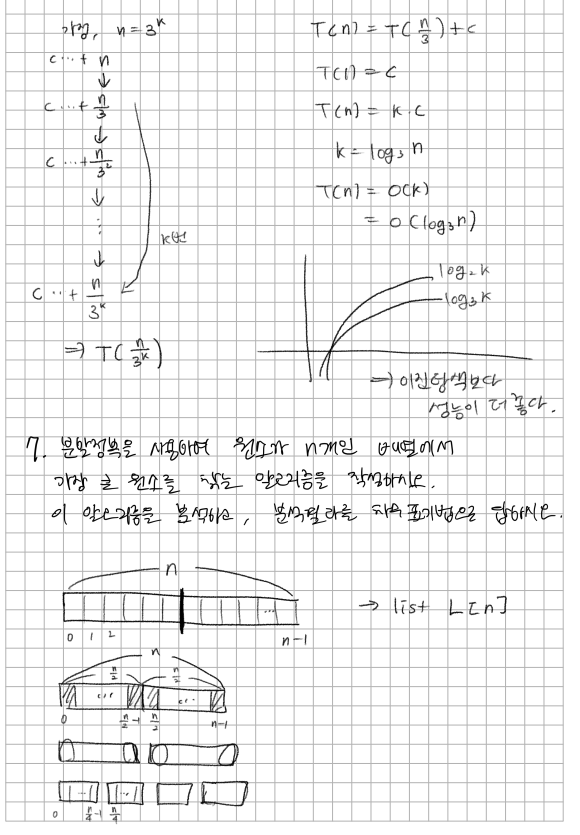 가정, n=3^k
c ⋯ + n
↓
c ⋯ + n/3
↓
c ⋯ + n/3²
↓
⋮
↓
k번
c ‥ + n/3^k
⇒ T(n/3^k)
T(n) = T(n/3) + c
T(1) = c
T(n) = k·c
k = log₃ n
T(n) = O(k)
= O(log₃n)
log₂k
log₃k
⇒ 이진탐색보다
성능이 더 좋다.
7. 분할정복을 사용하여 원소가 n개인 배열에서
가장 큰 원소를 찾는 알고리즘을 작성하시오.
이 알고리즘을 분석하고, 분석결과를 차수 표기법으로 답하시오.
n
...
→ list L[n]
0 1 2 n-1
n
n/2 n/2
... ...
0 n/2-1 n/2 n-1
... ...
0 n/4-1 n/4